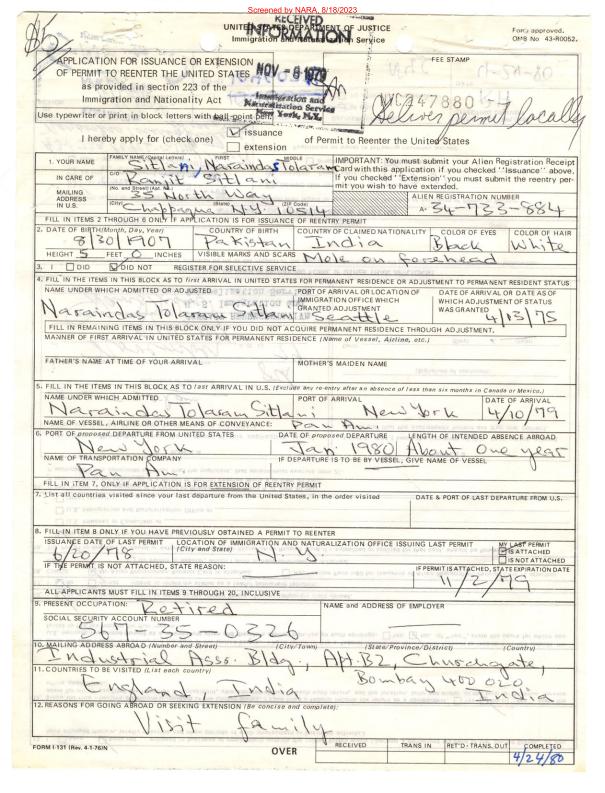 Screened by NARA, 8/18/2023
$5
UNITED STATES DEPARTMENT OF JUSTICE
Immigration and Naturalization Service
RECEIVED
INFORMATION
NOV - 8 1979
Immigration and
Naturalization Service
New York, N.Y.
Form approved.
OMB No. 43-R0052.
APPLICATION FOR ISSUANCE OR EXTENSION
OF PERMIT TO REENTER THE UNITED STATES
as provided in section 223 of the
Immigration and Nationality Act
FEE STAMP
NYC247880
Deliver permit locally
Use typewriter or print in block letters with ball-point pen.
I hereby apply for (check one)
✓ issuance
extension
of Permit to Reenter the United States
1. YOUR NAME
FAMILY NAME (Capital Letters) FIRST MIDDLE
Sitlani, Naraindas Tolaram
IN CARE OF
C/O
Ranjit Sitlani
MAILING ADDRESS IN U.S.
(No. and Street) (Apt. No.)
35 North Way
(City) (State) (ZIP Code)
Chappaqua NY 10514
IMPORTANT: You must submit your Alien Registration Receipt
Card with this application if you checked "Issuance" above.
If you checked "Extension" you must submit the reentry per-
mit you wish to have extended.
ALIEN REGISTRATION NUMBER
A- 34-733-884
FILL IN ITEMS 2 THROUGH 6 ONLY IF APPLICATION IS FOR ISSUANCE OF REENTRY PERMIT
2. DATE OF BIRTH (Month, Day, Year) COUNTRY OF BIRTH COUNTRY OF CLAIMED NATIONALITY COLOR OF EYES COLOR OF HAIR
8/30/1907 Pakistan India Black White
HEIGHT 5 FEET 0 INCHES VISIBLE MARKS AND SCARS Mole on forehead
3. I DID ✓ DID NOT REGISTER FOR SELECTIVE SERVICE
4. FILL IN THE ITEMS IN THIS BLOCK AS TO first ARRIVAL IN UNITED STATES FOR PERMANENT RESIDENCE OR ADJUSTMENT TO PERMANENT RESIDENT STATUS
NAME UNDER WHICH ADMITTED OR ADJUSTED
Naraindas Tolaram Sitlani
PORT OF ARRIVAL OR LOCATION OF
IMMIGRATION OFFICE WHICH
GRANTED ADJUSTMENT
Seattle
DATE OF ARRIVAL OR DATE AS OF
WHICH ADJUSTMENT OF STATUS
WAS GRANTED
4/13/75
FILL IN REMAINING ITEMS IN THIS BLOCK ONLY IF YOU DID NOT ACQUIRE PERMANENT RESIDENCE THROUGH ADJUSTMENT.
MANNER OF FIRST ARRIVAL IN UNITED STATES FOR PERMANENT RESIDENCE (Name of Vessel, Airline, etc.)
FATHER'S NAME AT TIME OF YOUR ARRIVAL MOTHER'S MAIDEN NAME
5. FILL IN THE ITEMS IN THIS BLOCK AS TO last ARRIVAL IN U.S. (Exclude any re-entry after an absence of less than six months in Canada or Mexico.)
NAME UNDER WHICH ADMITTED PORT OF ARRIVAL DATE OF ARRIVAL
Naraindas Tolaram Sitlani New York 4/10/79
NAME OF VESSEL, AIRLINE OR OTHER MEANS OF CONVEYANCE: Pan Am.
6. PORT OF proposed DEPARTURE FROM UNITED STATES DATE OF proposed DEPARTURE LENGTH OF INTENDED ABSENCE ABROAD
New York Jan. 1980 About One year
NAME OF TRANSPORTATION COMPANY IF DEPARTURE IS TO BE BY VESSEL, GIVE NAME OF VESSEL
Pan Am. —
FILL IN ITEM 7, ONLY IF APPLICATION IS FOR EXTENSION OF REENTRY PERMIT
7. List all countries visited since your last departure from the United States, in the order visited DATE & PORT OF LAST DEPARTURE FROM U.S.
8. FILL IN ITEM 8 ONLY IF YOU HAVE PREVIOUSLY OBTAINED A PERMIT TO REENTER
ISSUANCE DATE OF LAST PERMIT LOCATION OF IMMIGRATION AND NATURALIZATION OFFICE ISSUING LAST PERMIT MY LAST PERMIT
6/20/78 (City and State) N.Y. ✓ IS ATTACHED
IS NOT ATTACHED
IF THE PERMIT IS NOT ATTACHED, STATE REASON: IF PERMIT IS ATTACHED, STATE EXPIRATION DATE
11/2/79
ALL APPLICANTS MUST FILL IN ITEMS 9 THROUGH 20, INCLUSIVE
9. PRESENT OCCUPATION: Retired NAME and ADDRESS OF EMPLOYER
SOCIAL SECURITY ACCOUNT NUMBER
567-35-0326
10. MAILING ADDRESS ABROAD (Number and Street) (City/Town) (State/Province/District) (Country)
Industrial Asss. Bldg., Apt. B2, Churchgate,
Bombay 400 020
India
11. COUNTRIES TO BE VISITED (List each country)
England, India
12. REASONS FOR GOING ABROAD OR SEEKING EXTENSION (Be concise and complete):
Visit family
FORM I-131 (Rev. 4-1-76)N
OVER
RECEIVED TRANS IN RET'D - TRANS. OUT COMPLETED
4/24/80